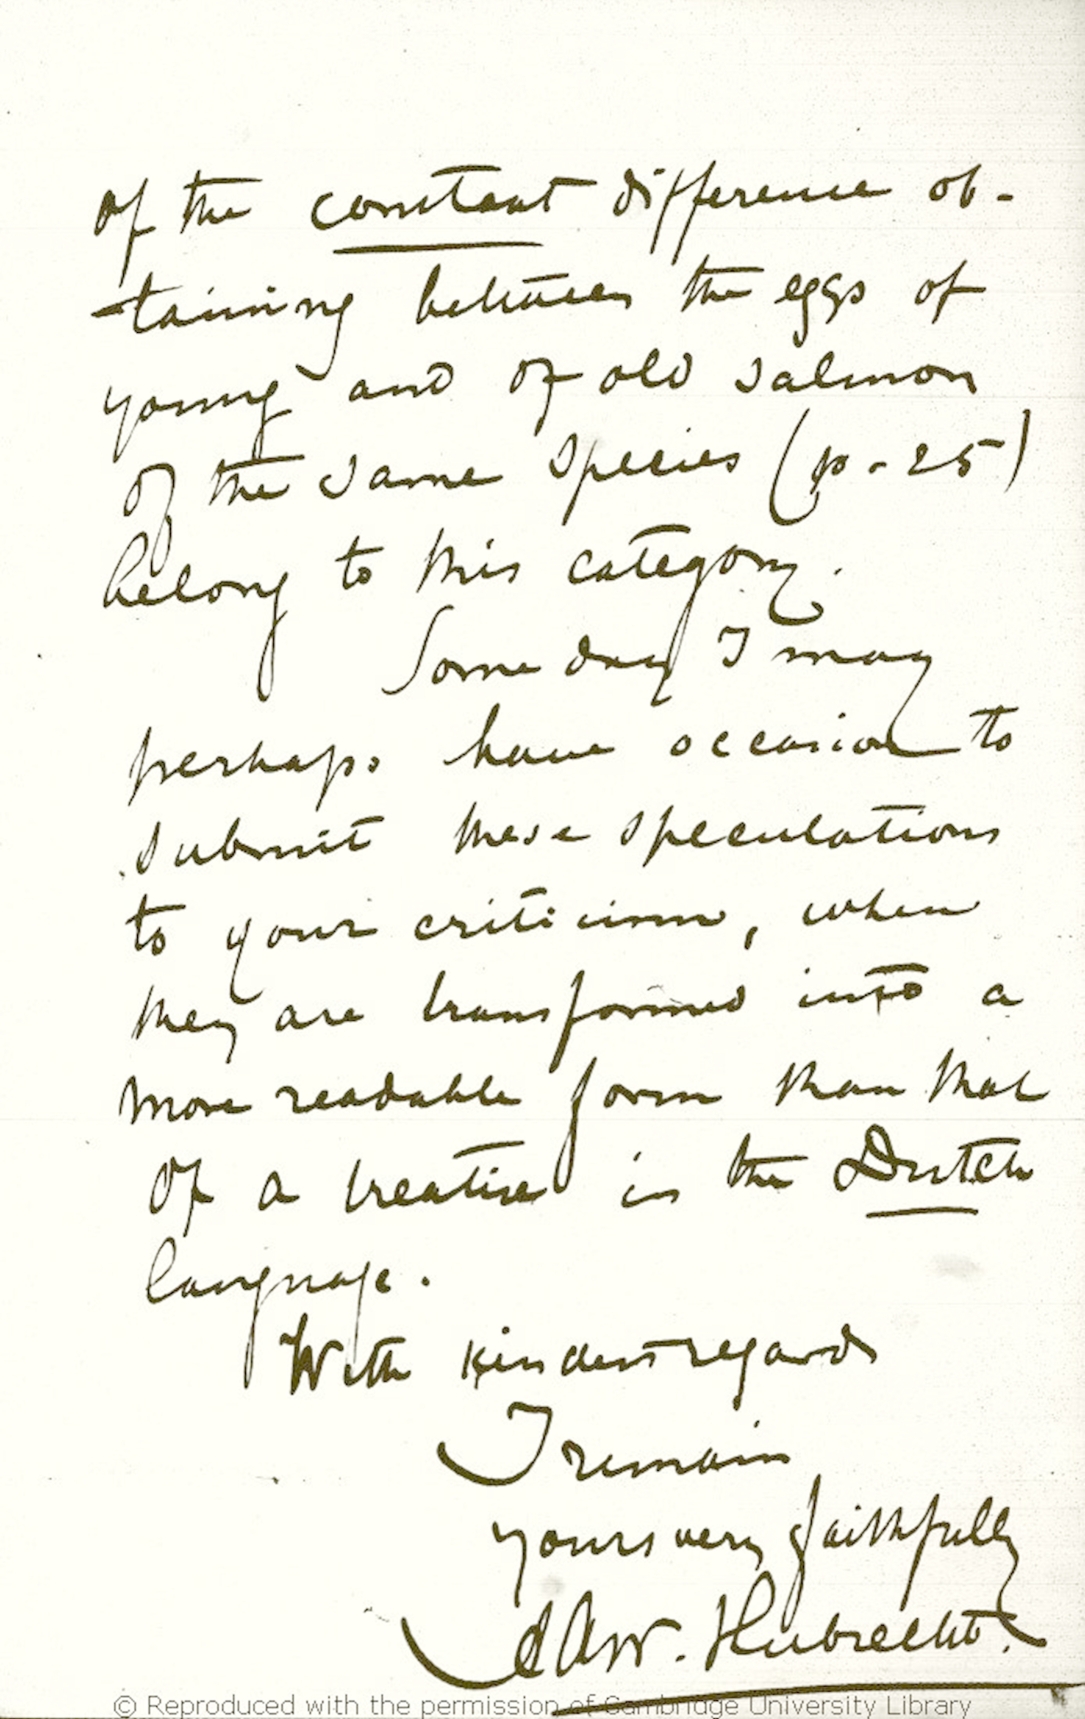 of the constant difference ob-
taining between the eggs of
young and of old salmon
of the same species (p. 25)
belong to this category.
Some day I may
perhaps have occasion to
submit these speculations
to your criticism, when
they are transformed into a
more readable form than that
of a treatise in the Dutch
language.
With kindest regards
I remain
yours very faithfully
AAW. Hubrecht.
© Reproduced with the permission of Cambridge University Library